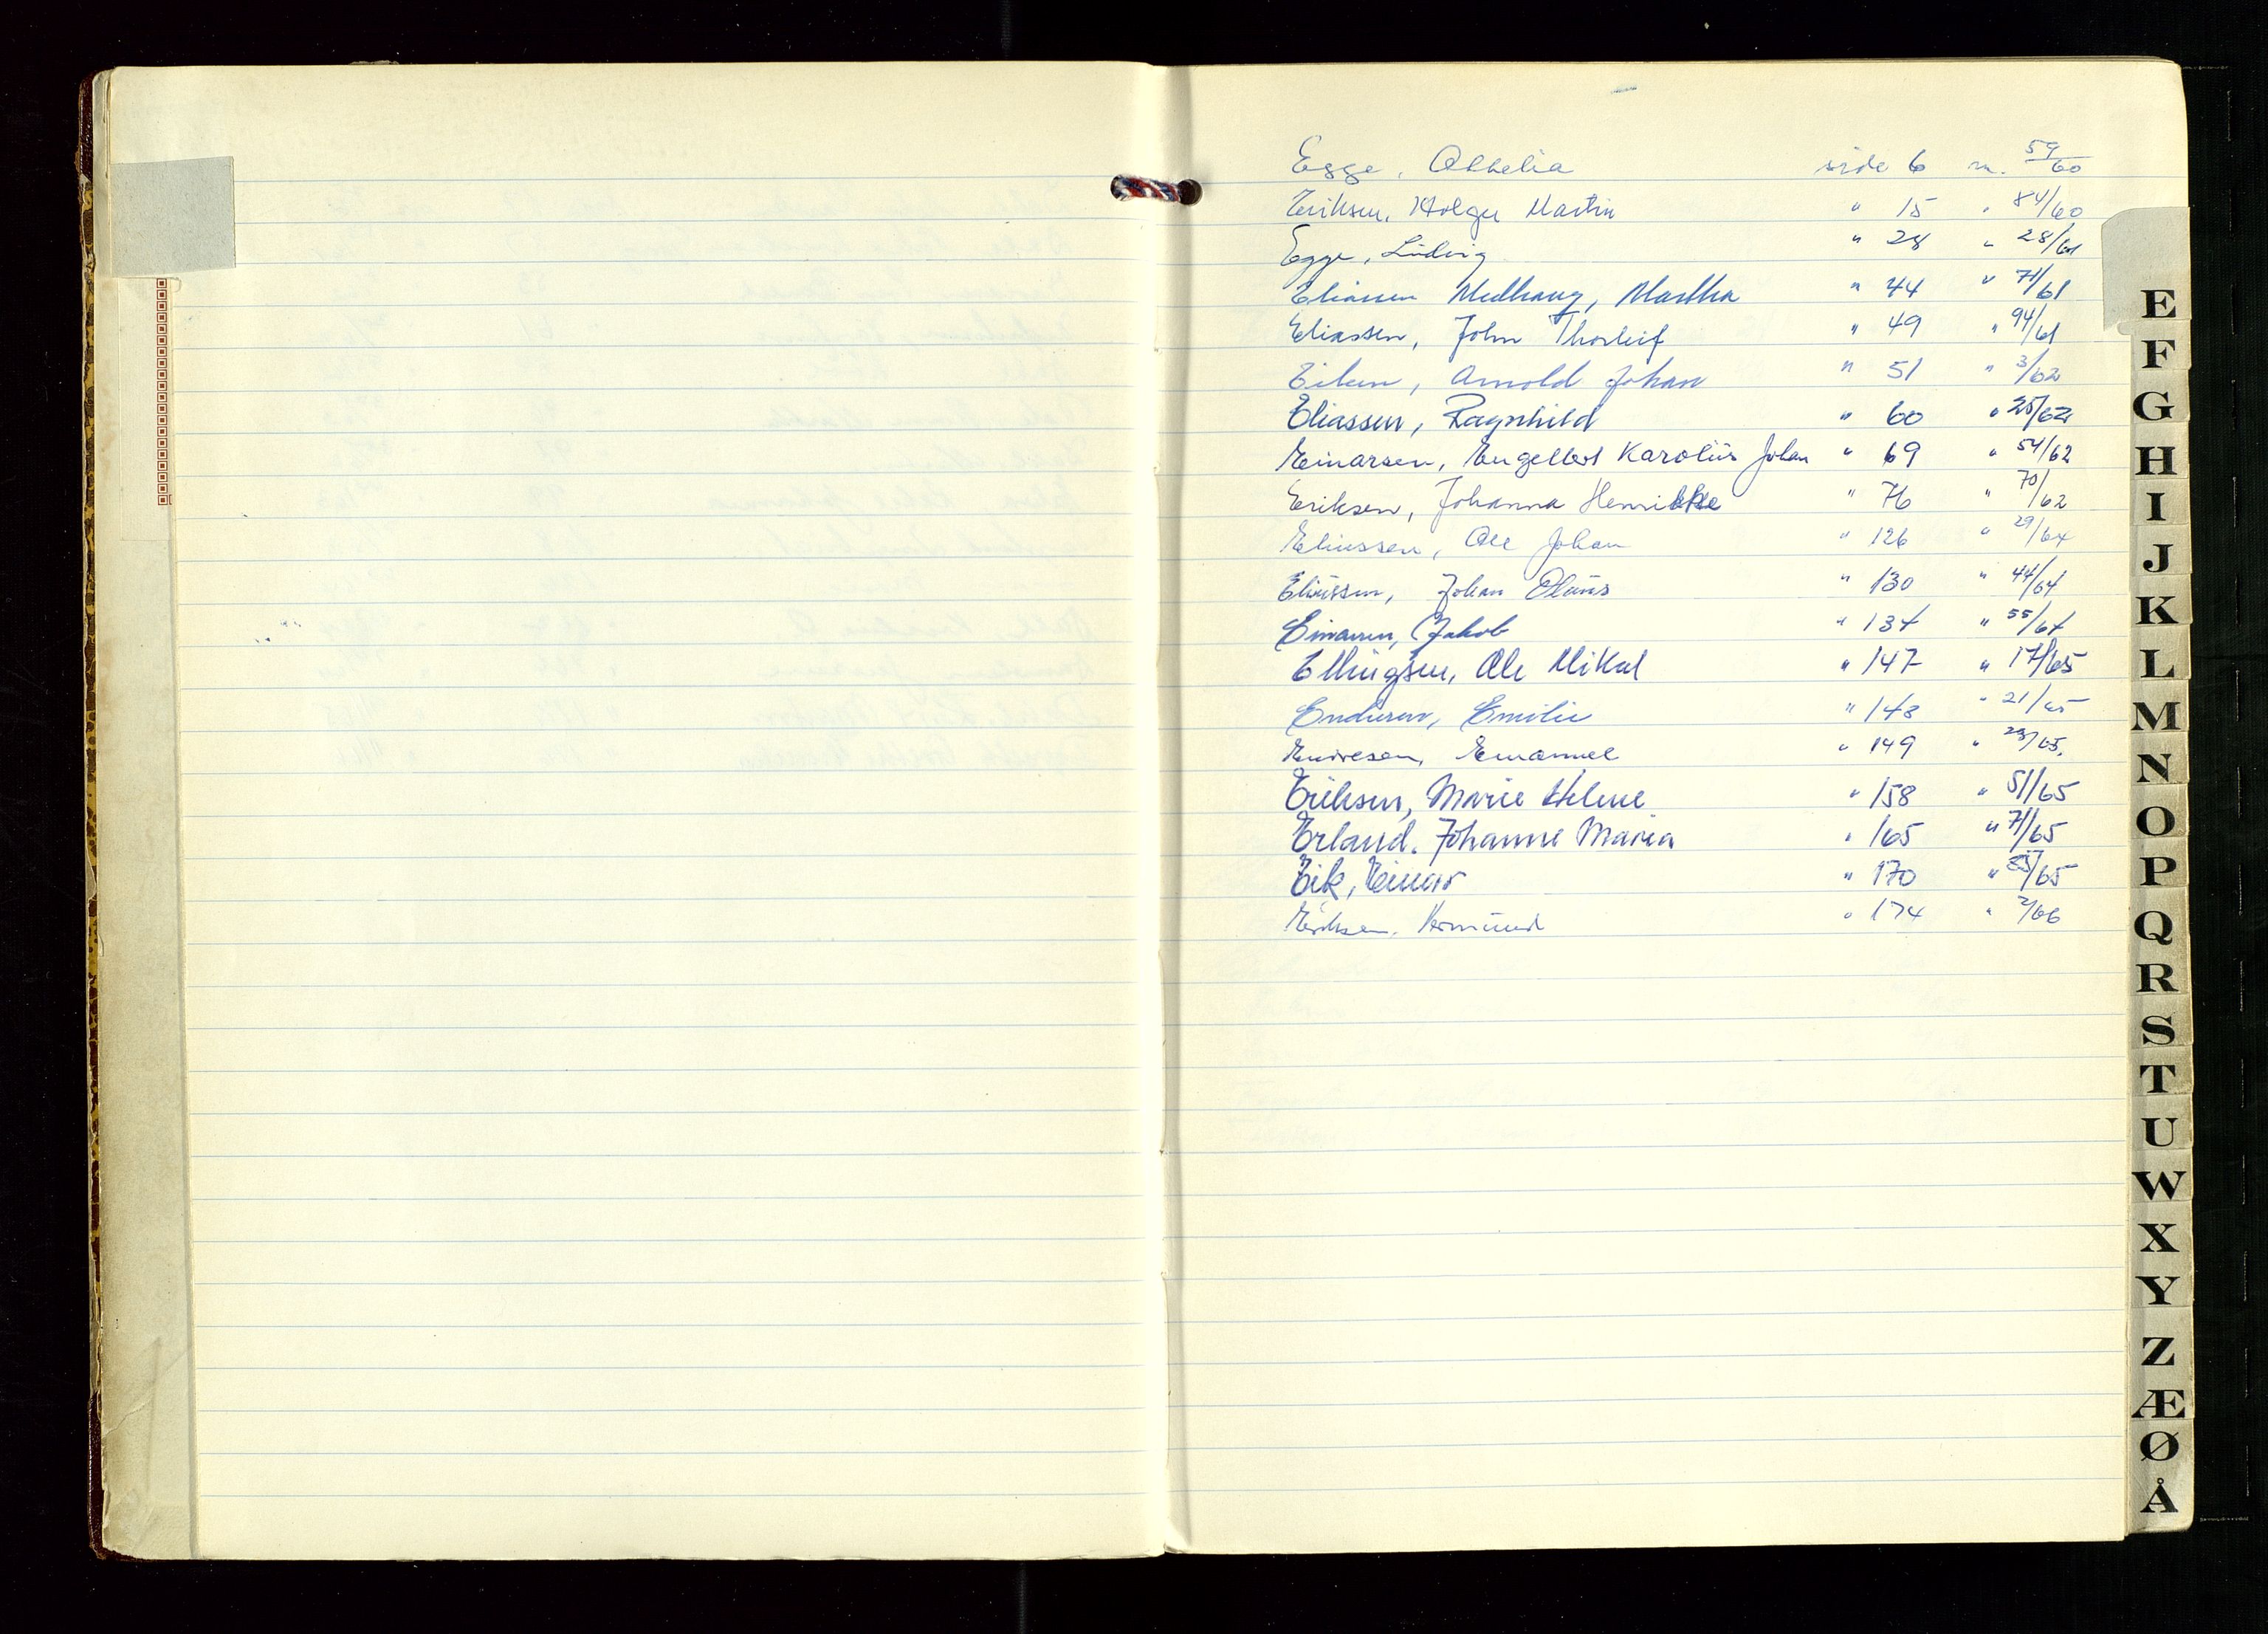 Egge, Othelia side 6 nr. 59/60
Eriksen, Holger Martin " 15 " 84/60
Egge, Ludvig " 28 " 28/61
Eliassen Medhaug, Martha " 44 " 71/61
Eliassen, John Thorleif " 49 " 94/61
Eiken, Arnold Johan " 51 " 3/62
Eliassen, Ragnhild " 60 " 25/62
Einarsen, Engelbert Karolius Johan " 69 " 54/62
Eriksen, Johanna Henrikke " 76 " 70/62
Eliussen, Ole Johan " 126 " 29/64
Eliussen, Johan Olaus " 130 " 44/64
Einarsen, Jakob " 134 " 55/64
Ellingsen, Ole Mikal " 147 " 17/65
Endresen, Emilie " 148 " 21/65
Enoresen, Emanuel " 149 " 23/65.
Eriksen, Marie Helene " 158 " 51/65
Erland. Johanne Maria " 165 " 71/65
Eik, Einar " 170 " 85/65
Eriksen. Hermund " 174 " 2/66
E
F
G
H
I
J
K
L
M
N
O
P
Q
R
S
T
U
W
X
Y
Z
Æ
Ø
Å